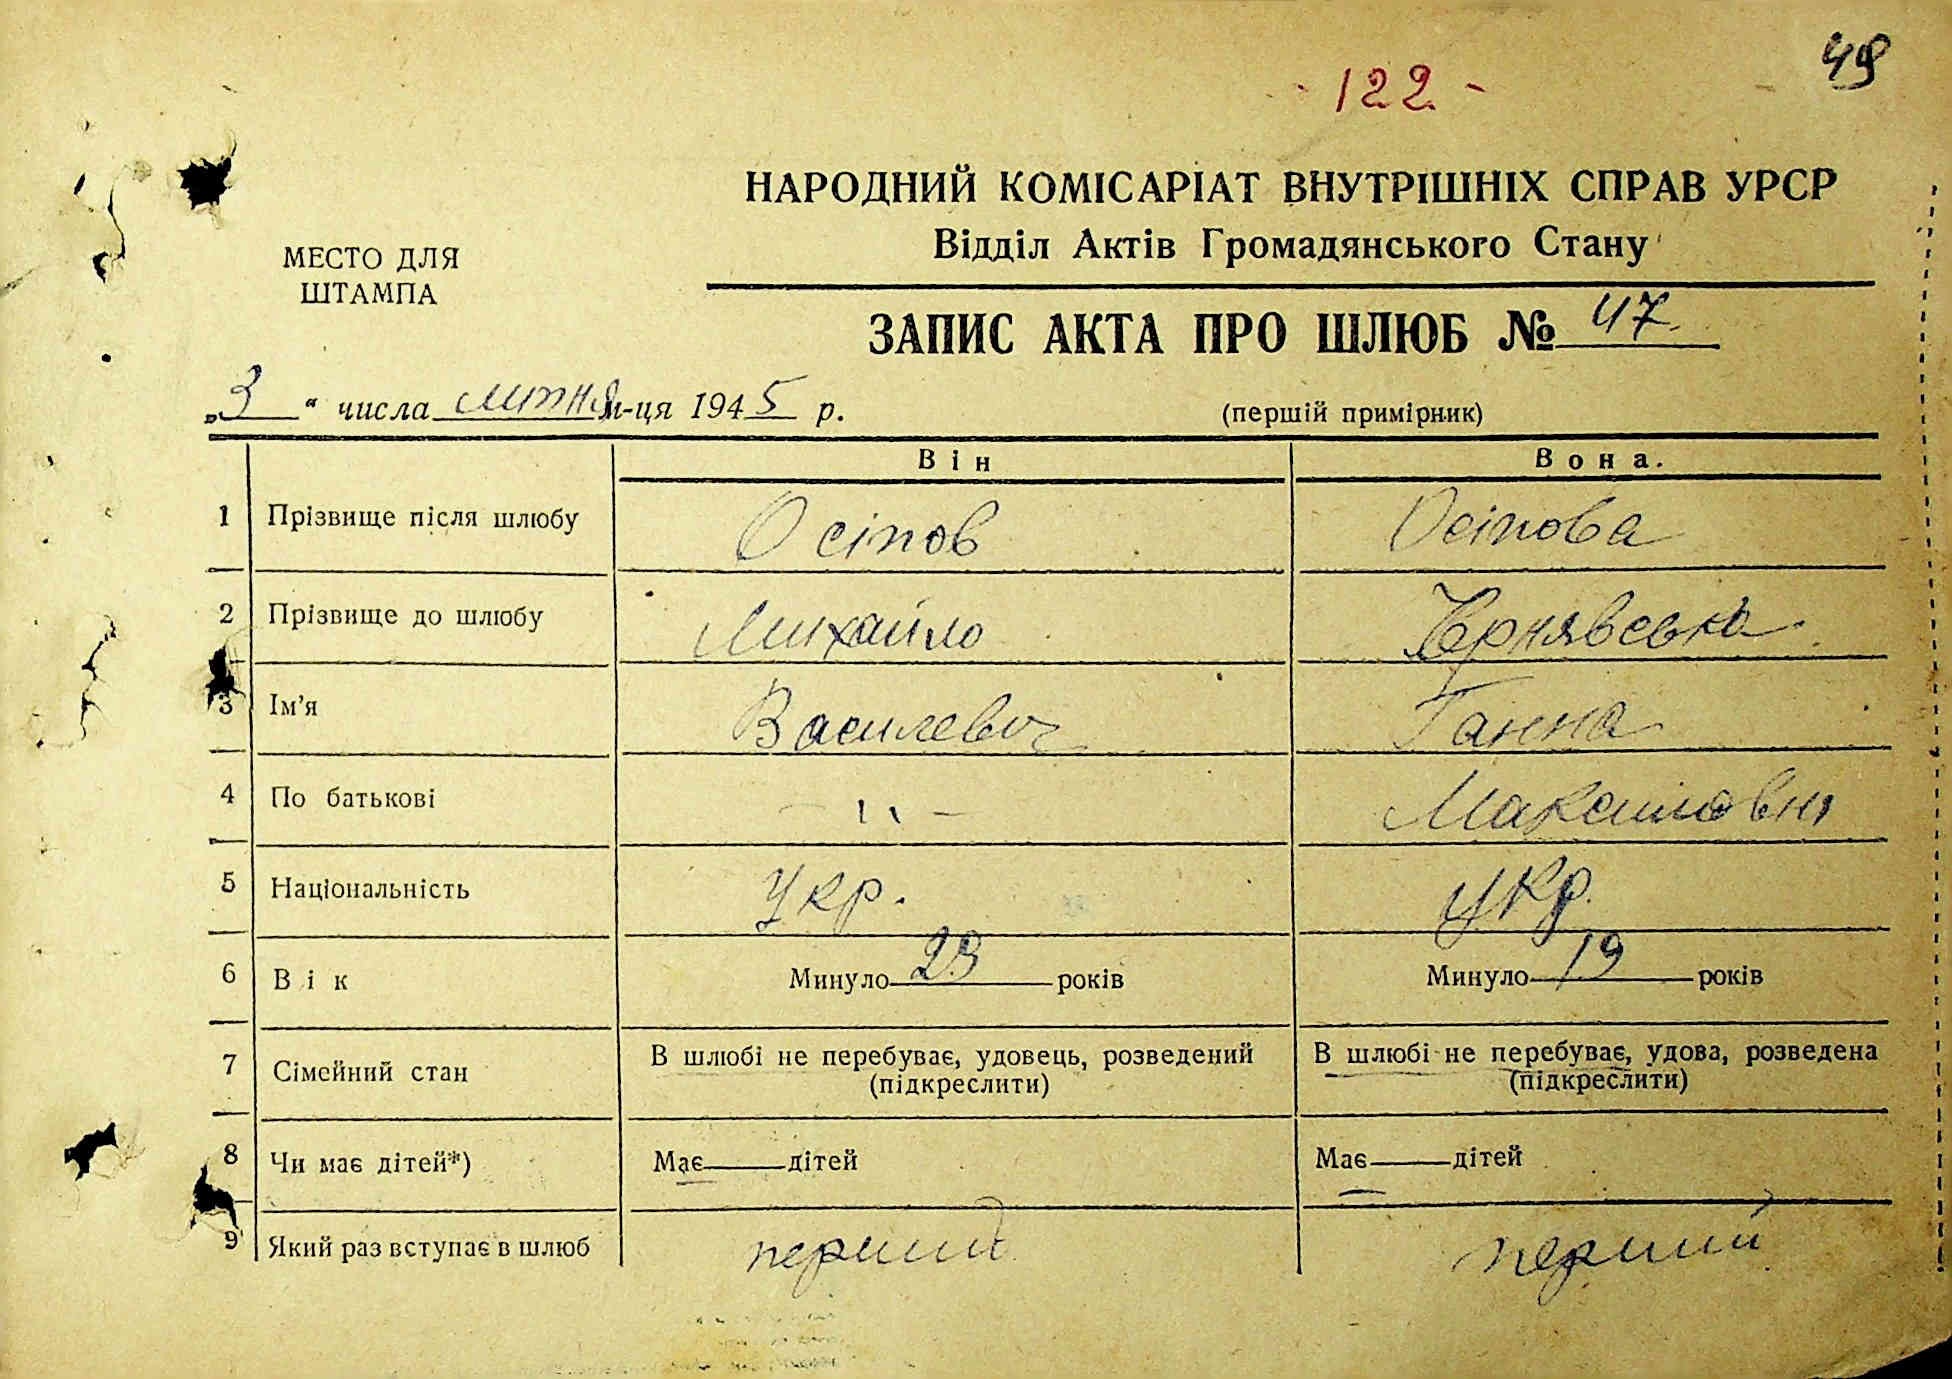 - 122 -
49
НАРОДНИЙ КОМІСАРІАТ ВНУТРІШНІХ СПРАВ УРСР
Відділ Актів Громадянського Стану
МЕСТО ДЛЯ
ШТАМПА
ЗАПИС АКТА ПРО ШЛЮБ № 47.
„3“ числа липня м-ця 1945 р.
(першій примірник)
Він Вона.
1 Прізвище після шлюбу Осіпов Осіпова
2 Прізвище до шлюбу Михайло Чернявська
3 Ім'я Василевич Ганна
4 По батькові - " - Максимовна
5 Національність Укр. укр.
6 Вік Минуло 23 років Минуло 19 років
7 Сімейний стан В шлюбі не перебуває, удовець, розведений В шлюбі не перебуває, удова, розведена
(підкреслити) (підкреслити)
8 Чи має дітей*) Має дітей Має дітей
9 Який раз вступає в шлюб перший перший